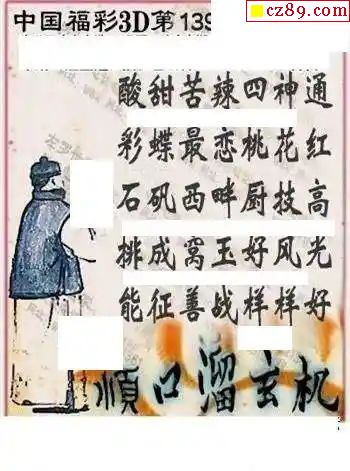 cz89.com
中国福彩3D第139
酸甜苦辣四神通
彩蝶最恋桃花红
石矶西畔厨技高
排成窝玉好风光
能征善战样样好
顺口溜玄机